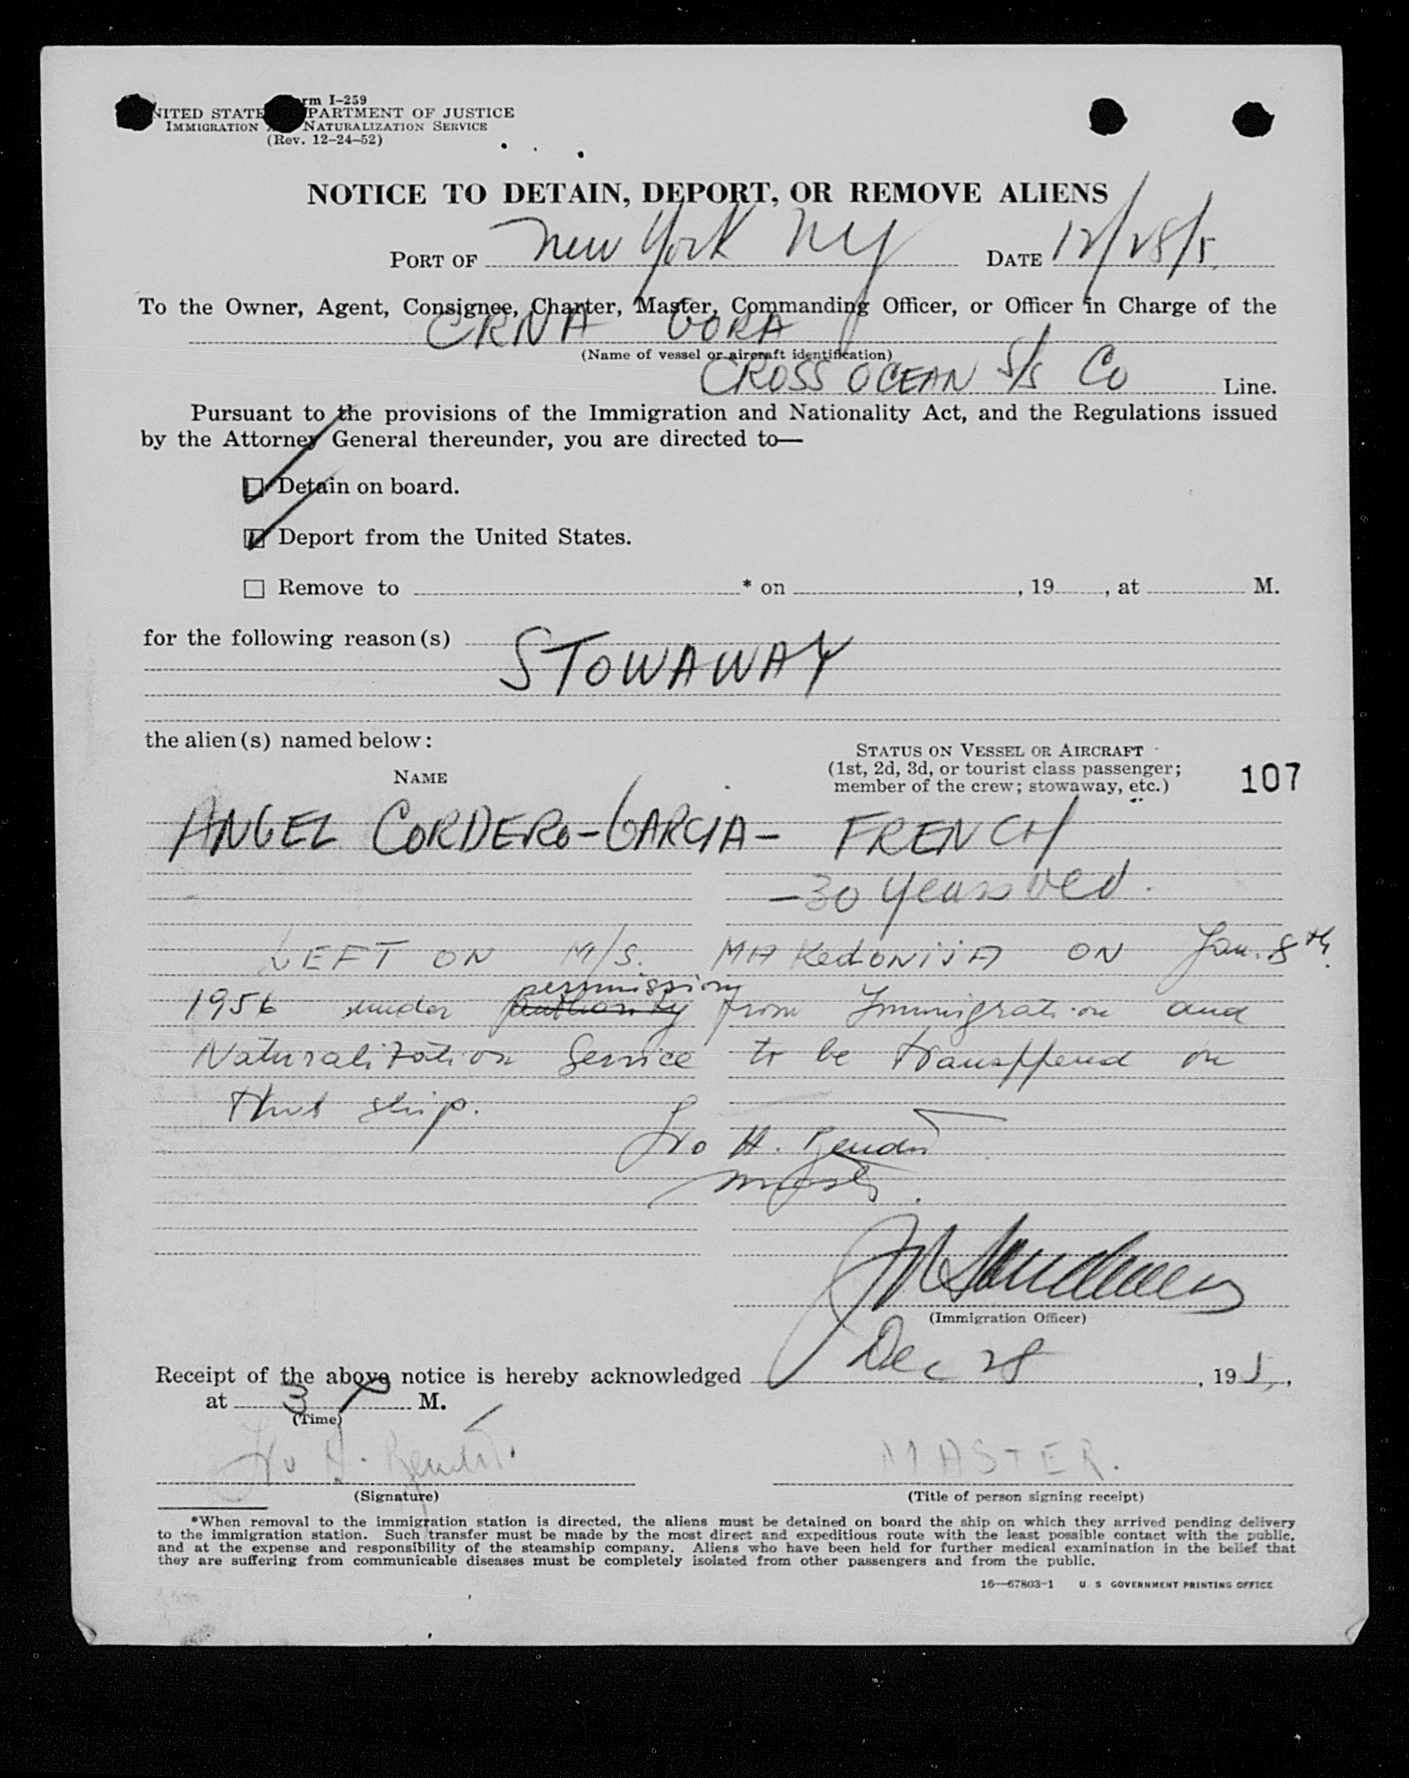 rm I-259
NITED STATE PARTMENT OF JUSTICE
IMMIGRATION NATURALIZATION SERVICE
(Rev. 12-24-52)
NOTICE TO DETAIN, DEPORT, OR REMOVE ALIENS
PORT OF New York NY DATE 12/28/5
To the Owner, Agent, Consignee, Charter, Master, Commanding Officer, or Officer in Charge of the
CRNA GORA
(Name of vessel or aircraft identification)
CROSS OCEAN S/S Co Line.
Pursuant to the provisions of the Immigration and Nationality Act, and the Regulations issued
by the Attorney General thereunder, you are directed to—
Detain on board.
Deport from the United States.
Remove to * on , 19 , at M.
for the following reason(s)
STOWAWAY
the alien(s) named below:
STATUS ON VESSEL OR AIRCRAFT
NAME
(1st, 2d, 3d, or tourist class passenger;
member of the crew; stowaway, etc.)
107
ANGEL CORDERO-GARCIA- FRENCH
-30 years old.
LEFT ON M/S. MAKEDONIJA ON Jan. 8th
permission
1956 under authority from Immigration and
Naturalization Service to be transffered on
that ship.
Ivo H.
(Immigration Officer)
Receipt of the above notice is hereby acknowledged Dec 28, 195,
at 3 P M.
(Time)
Ivo H. MASTER.
(Signature) (Title of person signing receipt)
*When removal to the immigration station is directed, the aliens must be detained on board the ship on which they arrived pending delivery
to the immigration station. Such transfer must be made by the most direct and expeditious route with the least possible contact with the public,
and at the expense and responsibility of the steamship company. Aliens who have been held for further medical examination in the belief that
they are suffering from communicable diseases must be completely isolated from other passengers and from the public.
16—67803-1 U. S. GOVERNMENT PRINTING OFFICE